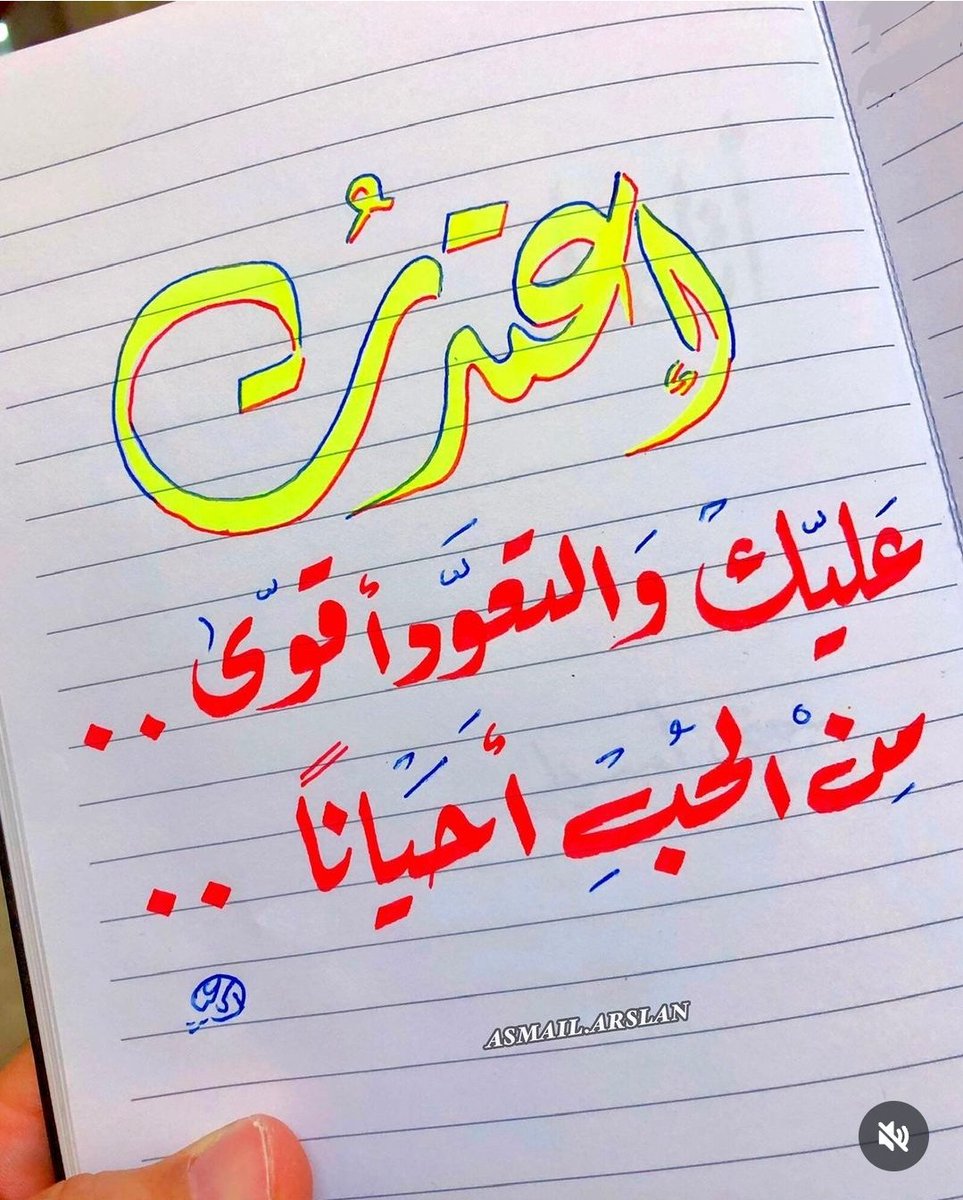 إعتدتُ
عَليك وَالتعوَّد أقوى ..
مِنْ الحُبِ أحيَاناً ..
ASMAIL.ARSLAN